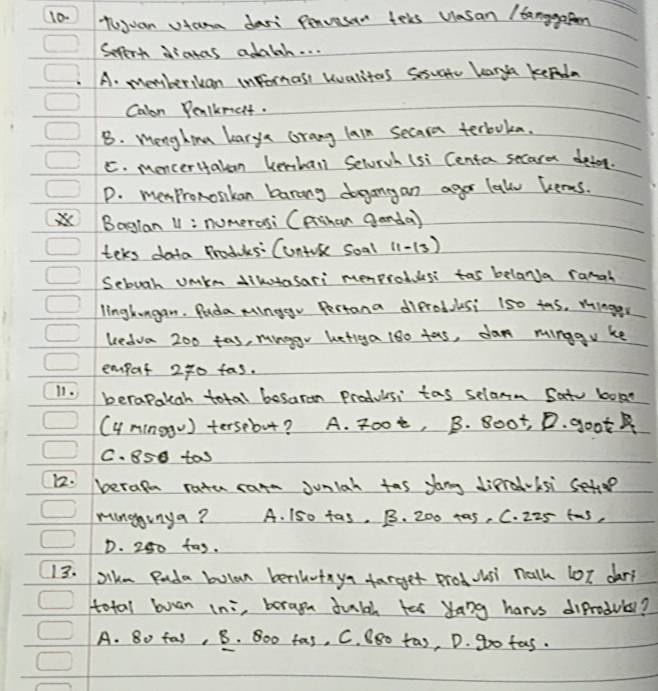 10. Tujuan utama dari Penulisan teks Ulasan / tanggapan
Seperti diatas adalah...
A. Memberikan informasi kualitas Sesuatu karya kepada
Calon Penikmat.
B. Menghina karya orang lain secara terbuka.
C. Menceritakan kembali Seluruh isi Cerita secara detog.
D. Mempromosikan barang dagangan agar laku keras.
Bagian 11 : numerasi (Pilihan ganda)
teks data Produksi (untuk Soal 11-13)
Sebuah umkm dikutasari memproduksi tas belanja ramah
lingkungan. Pada minggu Pertama diproduksi 150 tas. minggu
kedua 200 tas, minggu ketiga 180 tas, dan minggu ke
empat 270 tas.
11. berapakah total besaran Produksi tas selama Satu bulan
(4 minggu) tersebut? A. 700 t, B. 800t, D. 900t
C. 850 tas
12. berapa rata rata Jumlah tas yang diproduksi setiap
minggunya? A. 150 tas. B. 200 tas, C. 225 tas,
D. 250 tas.
13. Jika Pada bulan berikutnya target produksi naik 10% dari
total bulan ini, berapa Jumlah tas yang harus diproduksi?
A. 80 tas, B. 800 tas, C. 880 tas, D. 90 tas.